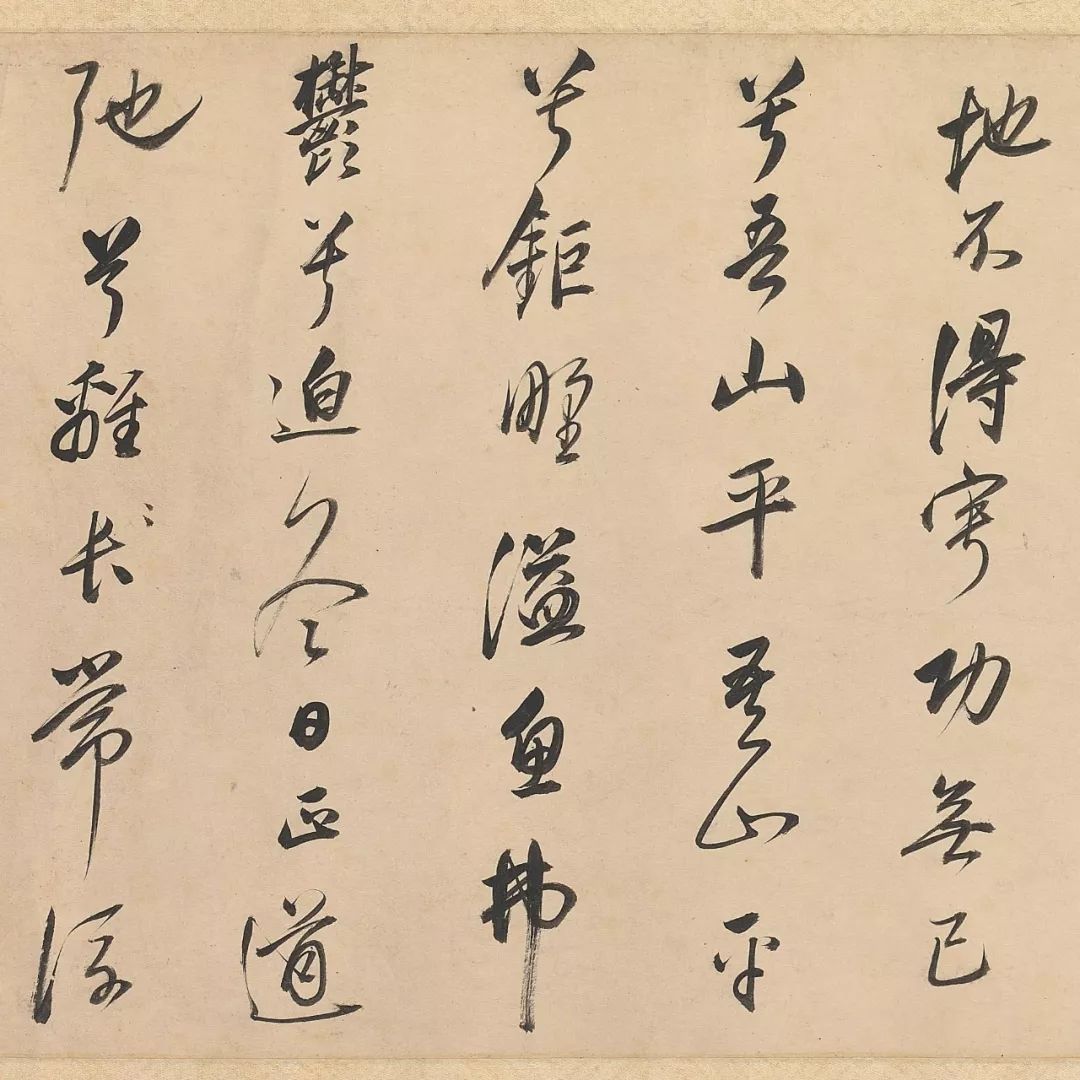 地不得寧功無已
兮吾山平吾山平
兮鉅野溢魚拂
鬱兮迫冬日正道
弛兮離長常流